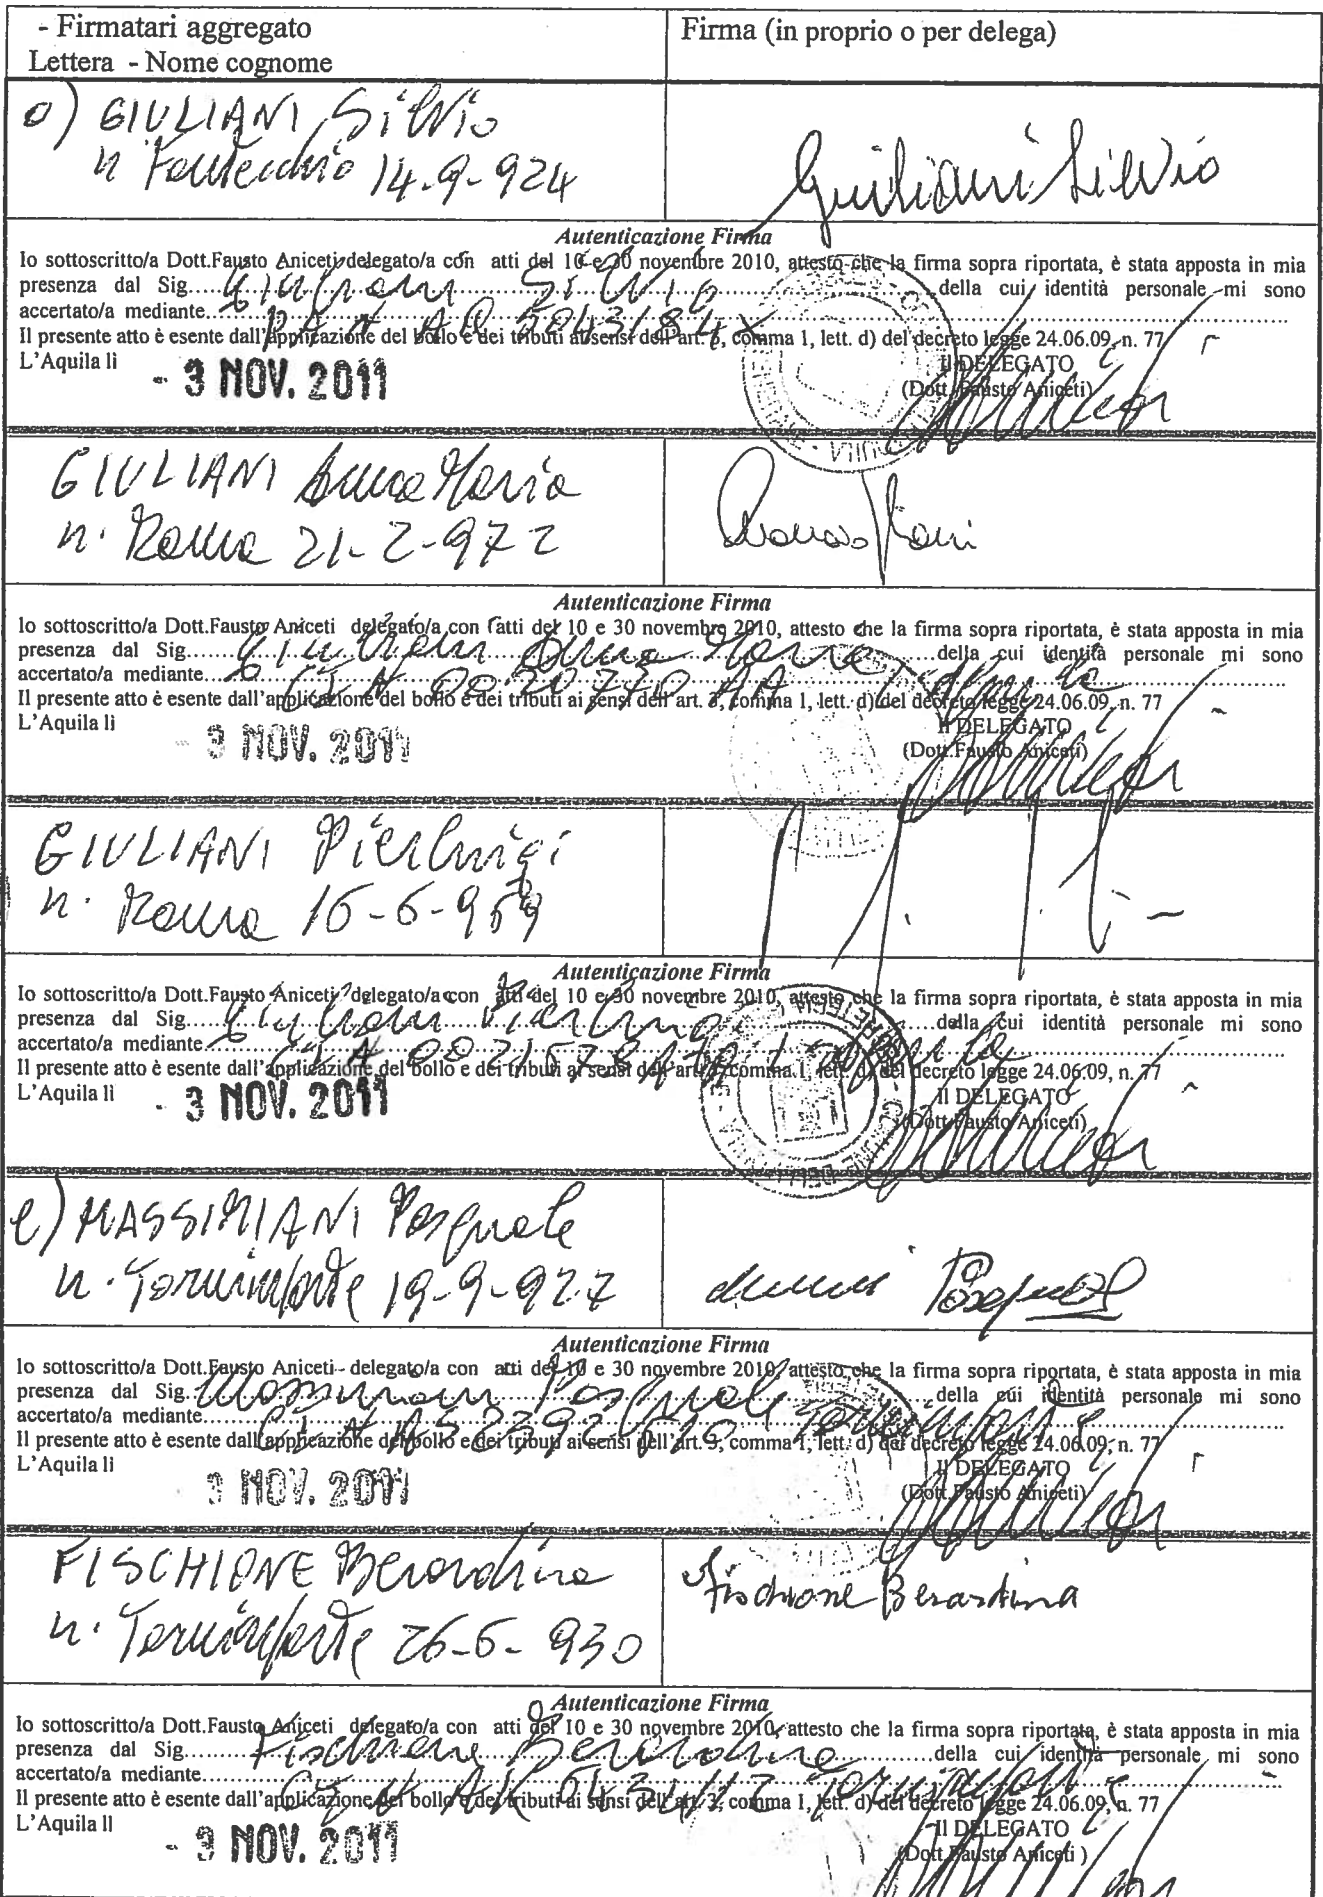 - Firmatari aggregato
Lettera - Nome cognome
Firma (in proprio o per delega)
o) GIULIANI Silvio
n. Fontecchio 14-9-924
Giuliani Silvio
Autenticazione Firma
Io sottoscritto/a Dott.Fausto Aniceti delegato/a con atti del 10 e 30 novembre 2010, attesto che la firma sopra riportata, è stata apposta in mia
presenza dal Sig. Giuliani Silvio della cui identità personale mi sono
accertato/a mediante
Il presente atto è esente dall'applicazione del bollo e dei tributi ai sensi dell'art. 3, comma 1, lett. d) del decreto legge 24.06.09, n. 77
L'Aquila lì
- 3 NOV. 2011
Il DELEGATO
(Dott. Fausto Aniceti)
GIULIANI Anna Maria
n. Roma 21-2-972
Autenticazione Firma
Io sottoscritto/a Dott.Fausto Aniceti delegato/a con atti del 10 e 30 novembre 2010, attesto che la firma sopra riportata, è stata apposta in mia
presenza dal Sig. Giuliani Anna Maria della cui identità personale mi sono
accertato/a mediante
Il presente atto è esente dall'applicazione del bollo e dei tributi ai sensi dell'art. 3, comma 1, lett. d) del decreto legge 24.06.09, n. 77
L'Aquila lì
- 3 NOV. 2011
Il DELEGATO
(Dott.Fausto Aniceti)
GIULIANI Pierluigi
n. Roma 16-6-959
Autenticazione Firma
Io sottoscritto/a Dott.Fausto Aniceti delegato/a con atti del 10 e 30 novembre 2010, attesto che la firma sopra riportata, è stata apposta in mia
presenza dal Sig. Giuliani Pierluigi della cui identità personale mi sono
accertato/a mediante
Il presente atto è esente dall'applicazione del bollo e dei tributi ai sensi dell'art. 3, comma 1, lett. d) del decreto legge 24.06.09, n. 77
L'Aquila lì
- 3 NOV. 2011
Il DELEGATO
(Dott.Fausto Aniceti)
e) MASSIMIANI Pasquale
n. Tornimparte 19-9-927
Pasquale
Autenticazione Firma
Io sottoscritto/a Dott.Fausto Aniceti delegato/a con atti del 10 e 30 novembre 2010, attesto che la firma sopra riportata, è stata apposta in mia
presenza dal Sig. Massimiani Pasquale della cui identità personale mi sono
accertato/a mediante Tornimparte
Il presente atto è esente dall'applicazione del bollo e dei tributi ai sensi dell'art. 3, comma 1, lett. d) del decreto legge 24.06.09, n. 77
L'Aquila lì
3 NOV. 2011
Il DELEGATO
(Dott.Fausto Aniceti)
FISCHIONE Berardina
n. Tornimparte 26-6-930
Fischione Berardina
Autenticazione Firma
Io sottoscritto/a Dott.Fausto Aniceti delegato/a con atti del 10 e 30 novembre 2010, attesto che la firma sopra riportata, è stata apposta in mia
presenza dal Sig. Fischione Berardina della cui identità personale mi sono
accertato/a mediante Tornimparte
Il presente atto è esente dall'applicazione del bollo e dei tributi ai sensi dell'art. 3, comma 1, lett. d) del decreto legge 24.06.09, n. 77
L'Aquila lì
- 3 NOV. 2011
Il DELEGATO
(Dott.Fausto Aniceti )